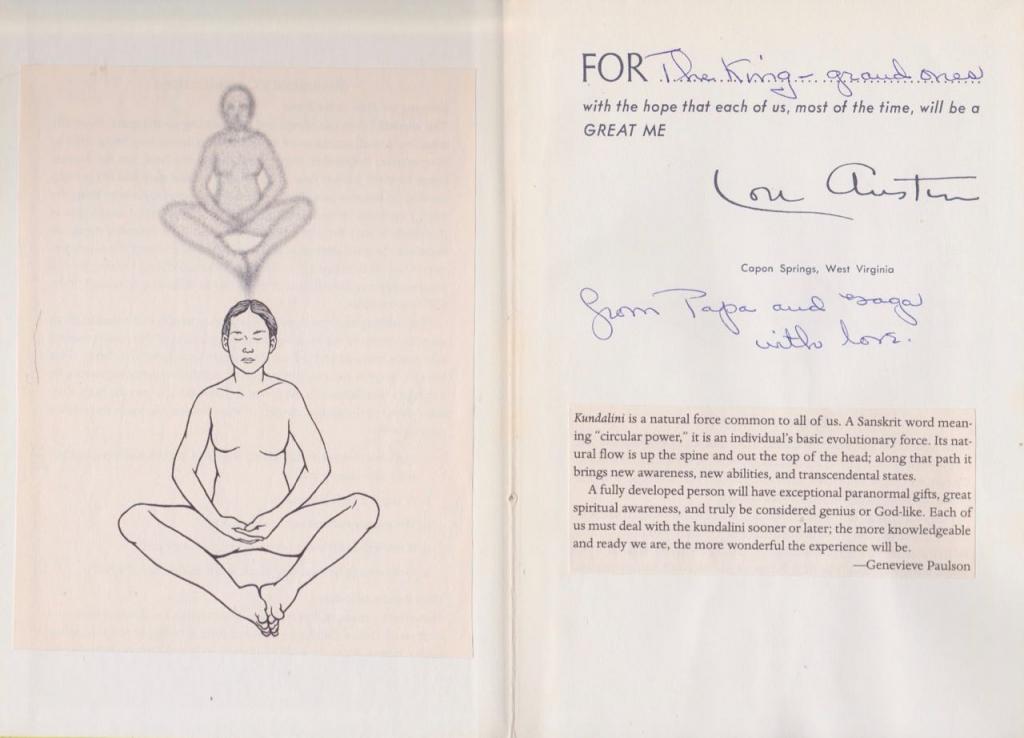 FOR The King - grand ones
with the hope that each of us, most of the time, will be a
GREAT ME
Lou Austin
Capon Springs, West Virginia
from Papa and Gaga
with love.
Kundalini is a natural force common to all of us. A Sanskrit word mean-
ing "circular power," it is an individual's basic evolutionary force. Its nat-
ural flow is up the spine and out the top of the head; along that path it
brings new awareness, new abilities, and transcendental states.
A fully developed person will have exceptional paranormal gifts, great
spiritual awareness, and truly be considered genius or God-like. Each of
us must deal with the kundalini sooner or later; the more knowledgeable
and ready we are, the more wonderful the experience will be.
—Genevieve Paulson